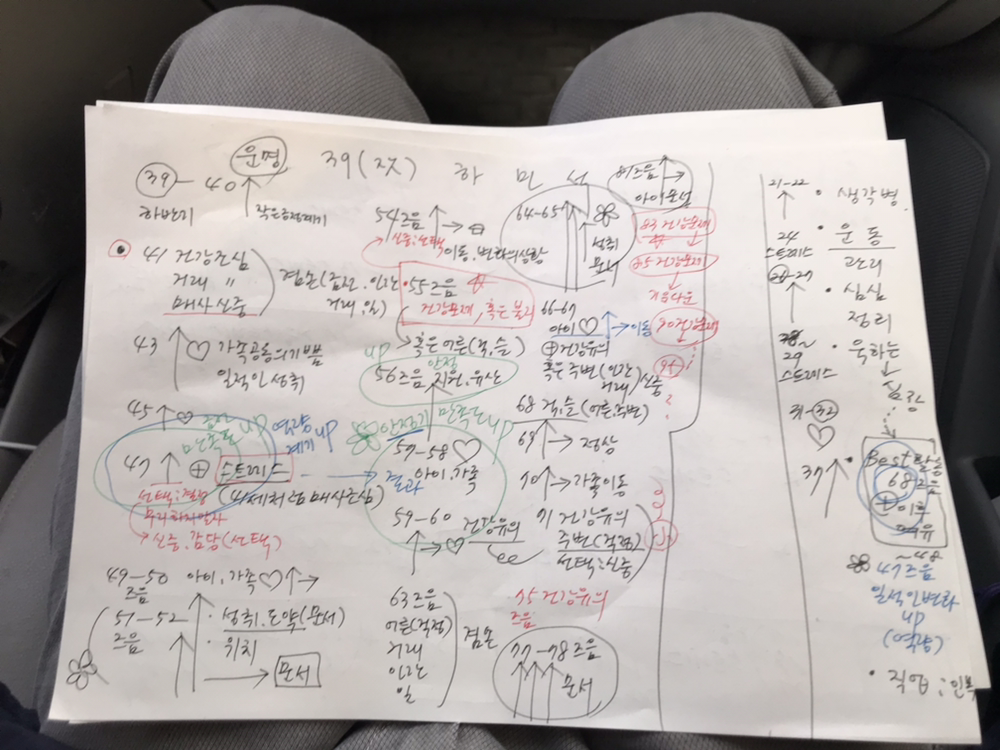 운명
39 (ㅈㅈ) 하 민 선
39 - 40
하반기
41 건강조심
거래 〃
매사신중
겸손(집진, 인간,
거래, 일)
43 ♡ 가족공동의기쁨
일적인 성취
45 ♡
만족도 up
역량
up
47 ⊕ 스트레스
(41세처럼 매사조심)
무리하지말자
신중, 감당(선택)
49-50 아이, 가족 ♡
즈음
51-52 · 성취, 도약(문서)
즈음 · 위치
문서
54즈음
신중:선택
이동, 변화의상황
· 55즈음
건강문제, 혹은 불리
혹은 어른(걱, 슬)
up
안정
56즈음 지원, 유산
안정기 만족도 up
57-58 ♡
결과 아이, 가족
59-60 건강유의
♡
63즈음
어른(걱정)
거래
인간
일
겸손
64-65
성취
문서
66-67
아이 ♡ → 이동
⊕ 건강유의
혹은 주변(인간
거래) 신중
68 걱, 슬(어른, 주변)
69 → 정상
70 → 가족이동
71 건강유의
주변(걱정)
선택:신중
75 건강유의
즈음
77-78즈음
문서
81즈음
아이문서
83 건강문제
85 건강문제
90건강문제
21-22
24
스트레스
26-27
29
스트레스
31-32
♡
37
· 생각병.
· 운동
관리
· 심실
정리
· 욱하는
· Best 활동
68 즈음
⊕ 이후
여유
~48
47즈음
일적인변화
up
(역량)
· 직업 : 인복